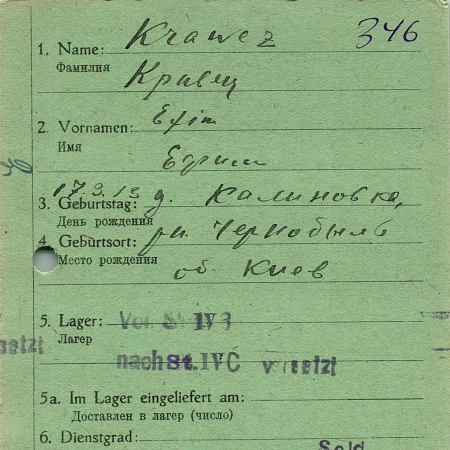 346
1. Name: Krawez
Фамилия Кравец
2. Vornamen: Efim
Имя Ефим
17.3.13 д. Калиновка,
3. Geburtstag:
День рождения
4. Geburtsort: рн. Чернобыль
Место рождения
об Киев
5. Lager: Von St IV B
Лагер
setzt
nach St. IV C versetzt
5a. Im Lager eingeliefert am:
Доставлен в лагер (число)
6. Dienstgrad:
Sold